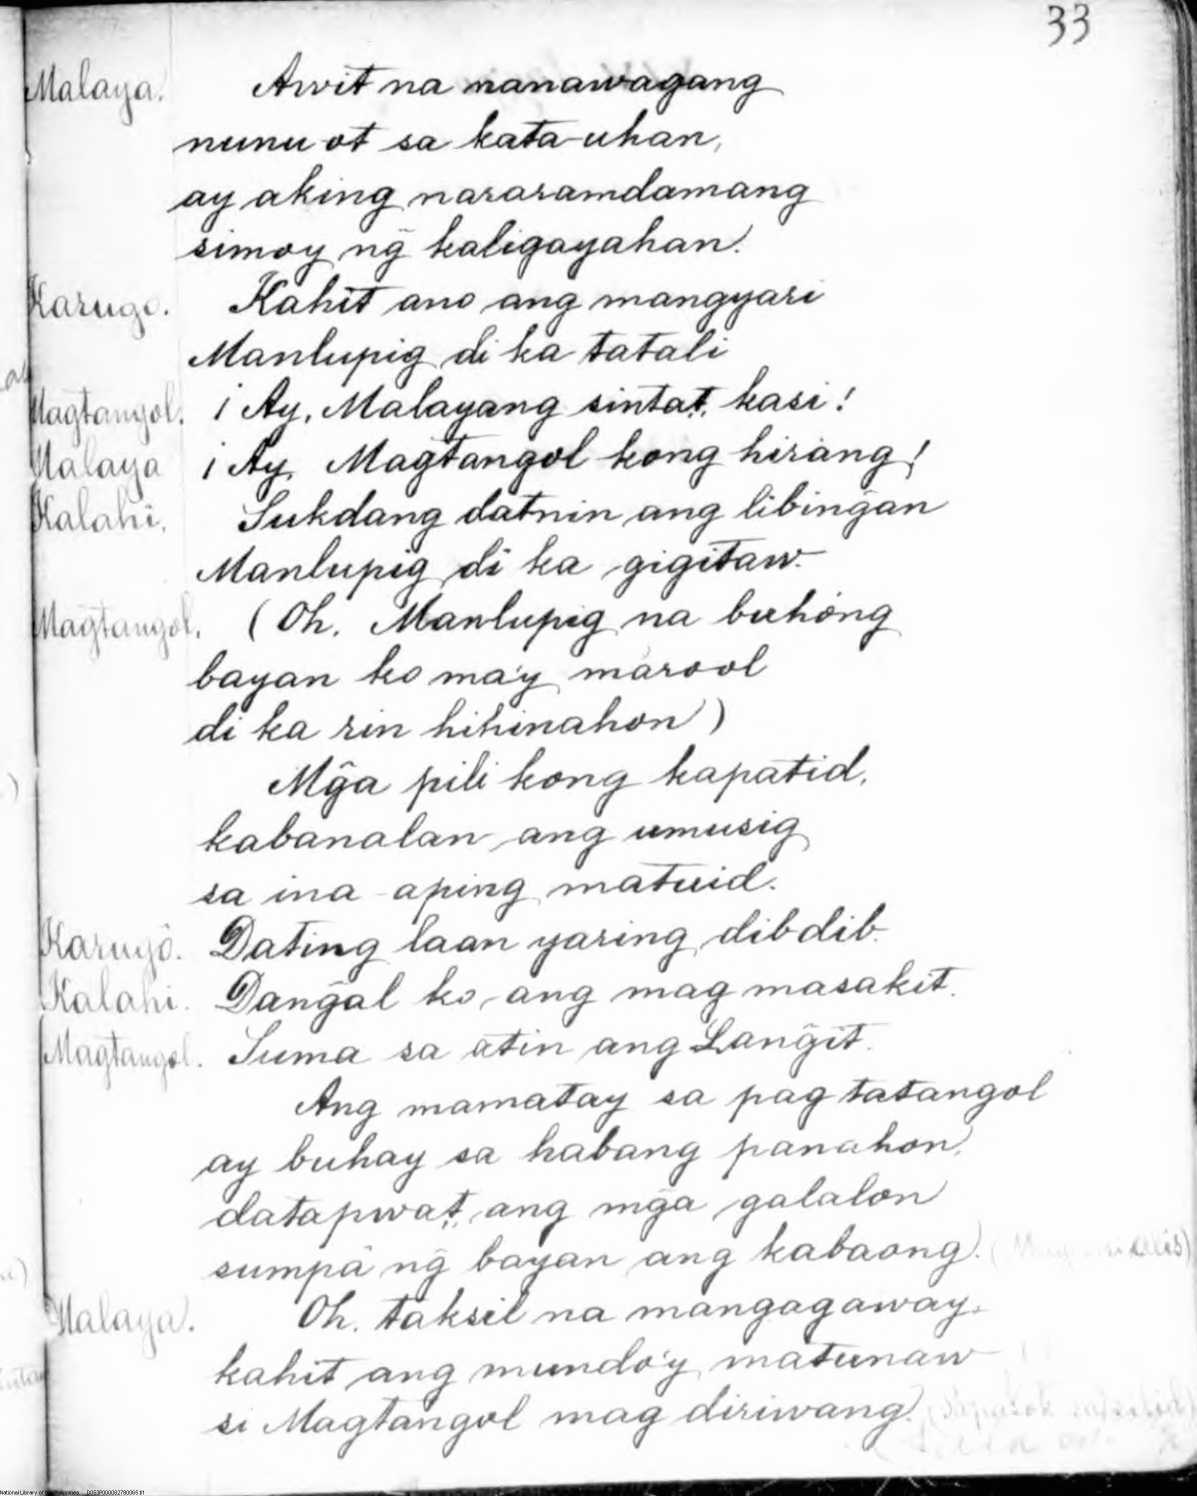 33
Malaya. Awit na nanawagang
nunuot sa kata-uhan,
ay aking nararamdamang
simoy ng̃ kaligayahan.
Karugo. Kahit ano ang mangyari
Manlupig di ka tatali
Magtangol. ¡Ay, Malayang sintat, kasi!
Malaya ¡Ay, Magtangol kong hirang!
Kalahi. Sukdang datnin ang libing̃an
Manlupig di ka gigitaw.
Magtangol. (Oh, Manlupig na buhóng
bayan ko ma'y marool
di ka rin hihinahon)
Mg̃a pili kong kapatid,
kabanalan ang umusig
sa ina-aping matuid.
Karugô. Dating laan yaring dibdib.
Kalahi. Dang̃al ko ang mag masakit.
Magtangol. Suma sa atin ang Lang̃it.
Ang mamatay sa pag tatangol
ay buhay sa habang panahon,
datapwat, ang mg̃a galalon
sumpâ ng̃ bayan ang kabaong.
Malaya. Oh, taksil na mangagaway,
kahit ang mundo'y matunaw
si Magtangol mag diriwang.